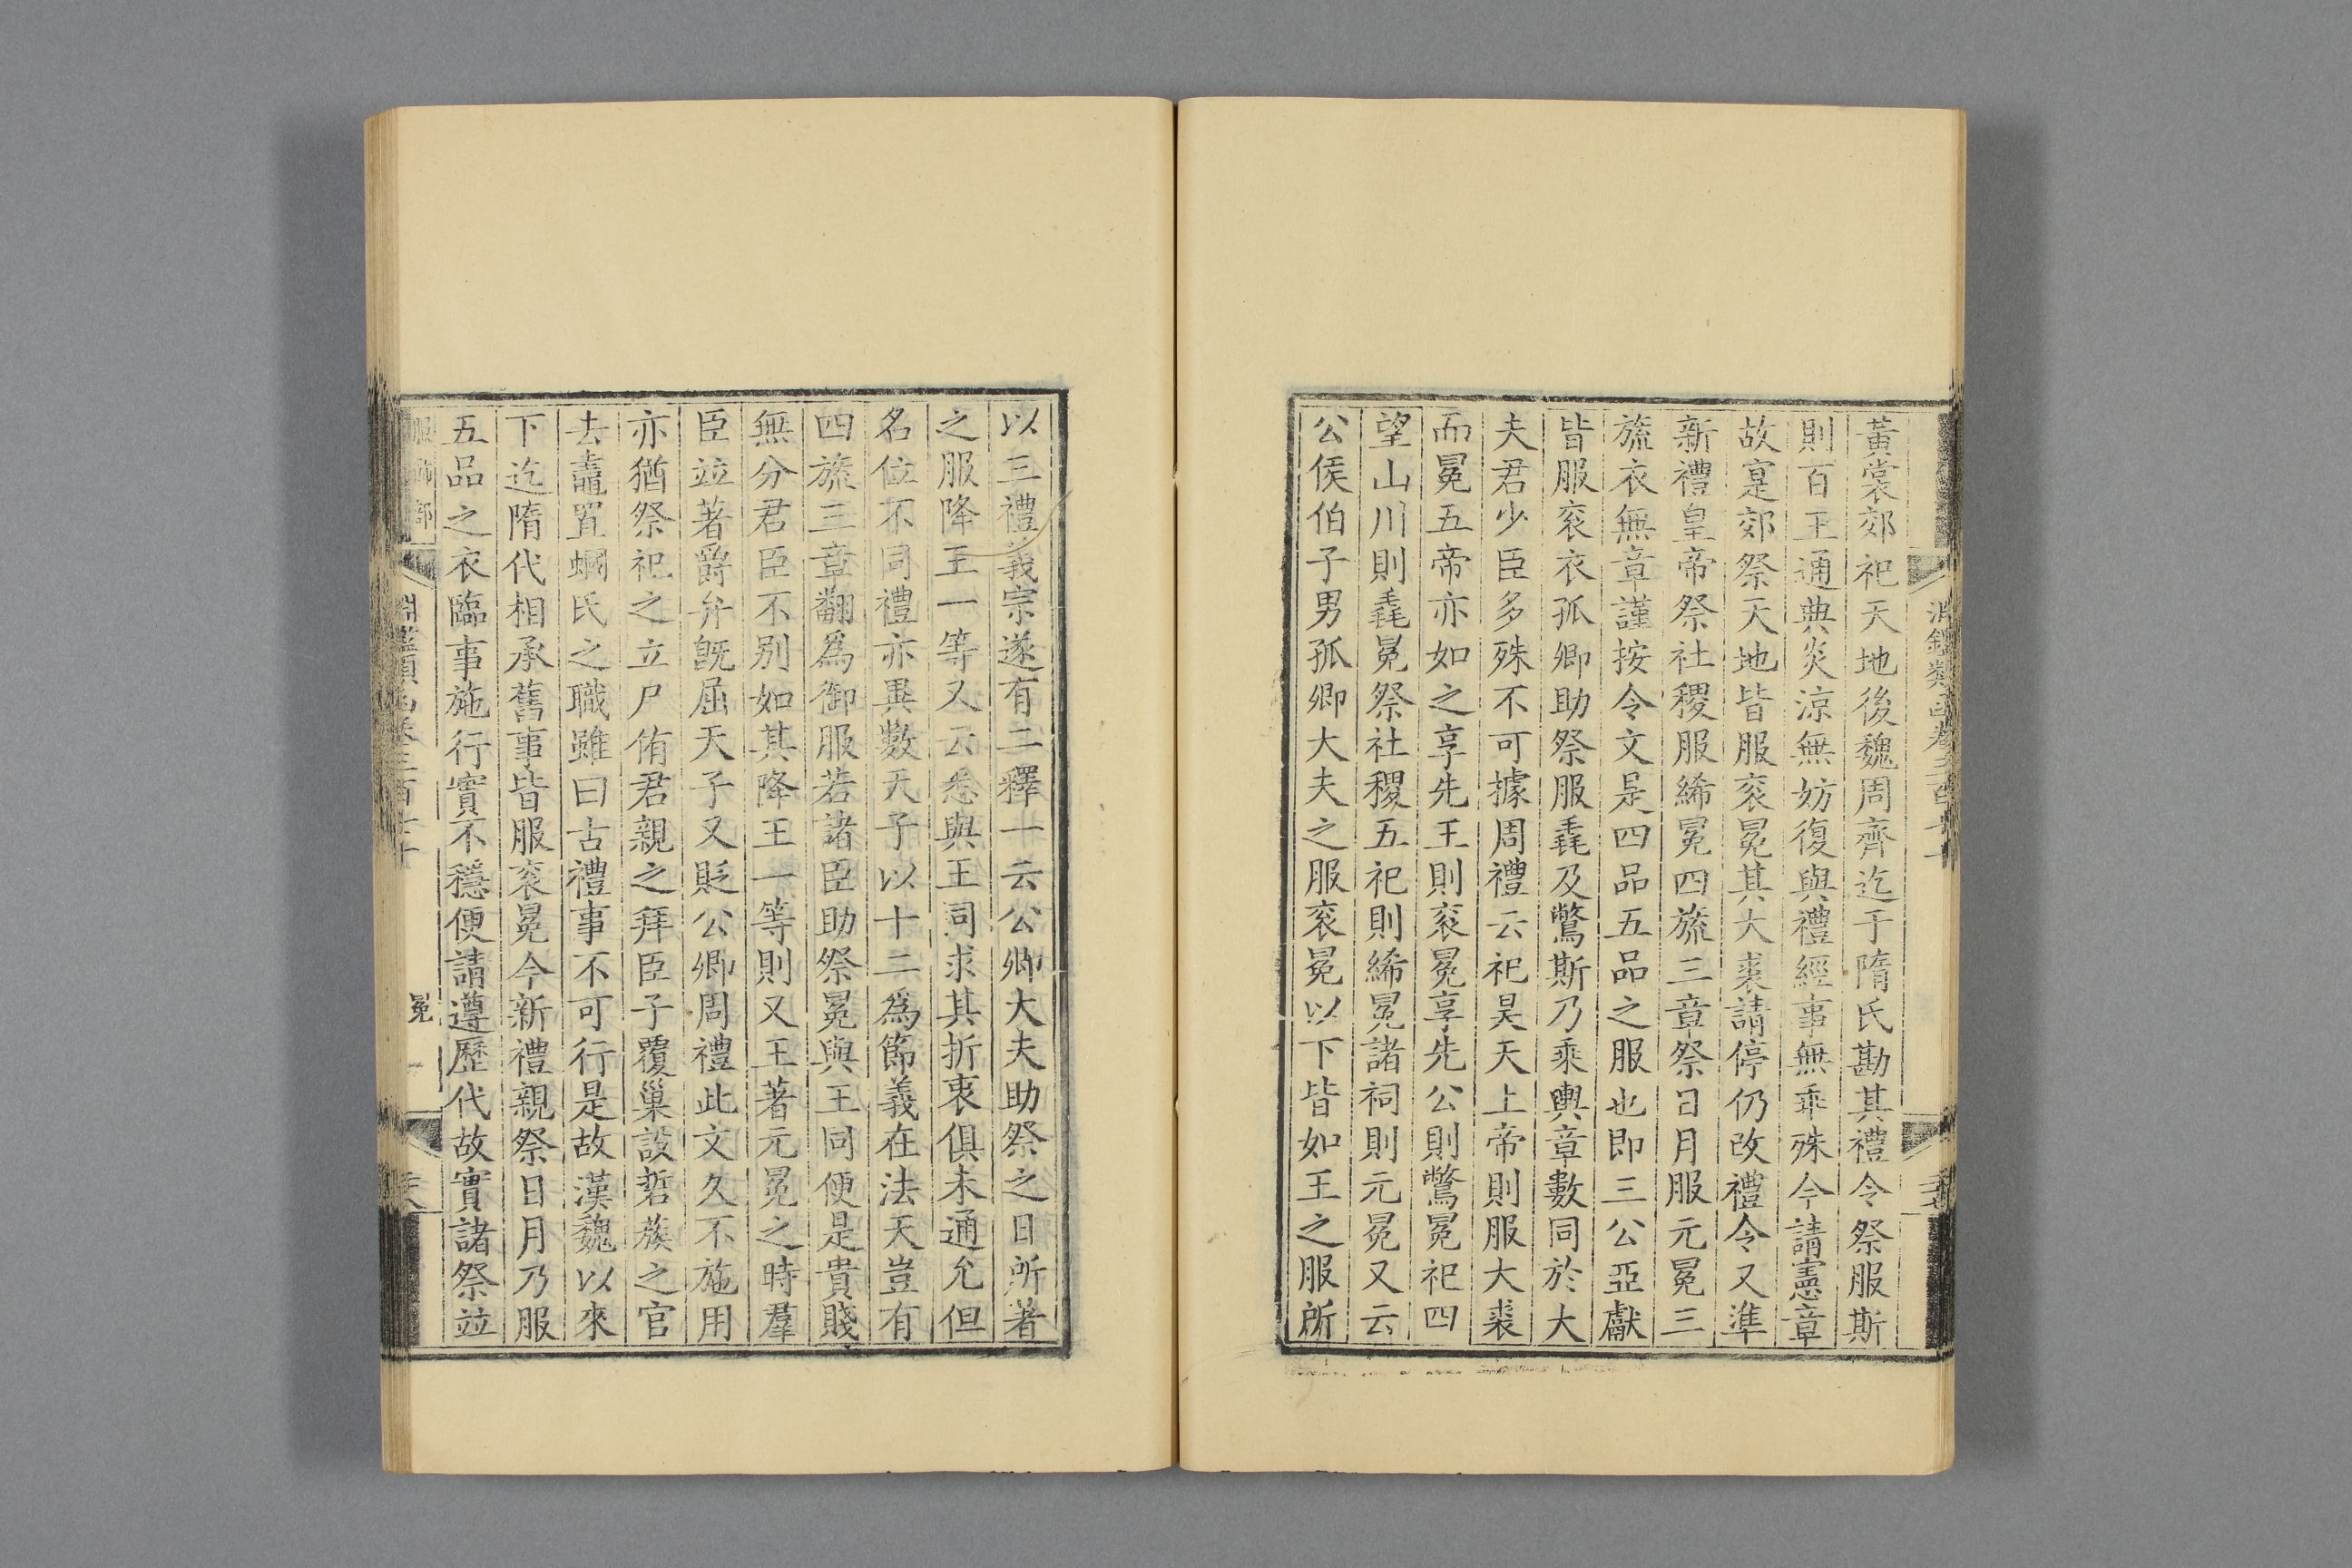 黃裳郊祀天地後魏周齊迄于隋氏勘其禮令祭服斯
則百王通典炎涼無妨復與禮經事無乖殊今請憲章
故寔郊祭天地皆服衮冕其大裘請停仍改禮令又準
新禮皇帝祭社稷服絺冕四旒三章祭日月服元冕三
旒衣無章謹按令文是四品五品之服也即三公亞獻
皆服衮衣孤卿助祭服毳及鷩斯乃乘輿章數同於大
夫君少臣多殊不可據周禮云祀昊天上帝則服大裘
而冕五帝亦如之享先王則衮冕享先公則鷩冕祀四
望山川則毳冕祭社稷五祀則絺冕諸祠則元冕又云
公侯伯子男孤卿大夫之服衮冕以下皆如王之服所
以三禮義宗遂有二釋一云公卿大夫助祭之日所著
之服降王一等又云悉與王同求其折衷俱未通允但
名位不同禮亦異數天子以十二爲節義在法天豈有
四旒三章翻爲御服若諸臣助祭冕與王同便是貴賤
無分君臣不別如其降王一等則又王著元冕之時羣
臣竝著爵弁旣屈天子又貶公卿周禮此文久不施用
亦猶祭祀之立尸侑君親之拜臣子覆巢設硩蔟之官
去鼃置蟈氏之職雖曰古禮事不可行是故漢魏以來
下迄隋代相承舊事皆服衮冕今新禮親祭日月乃服
五品之衣臨事施行實不穩便請遵歷代故實諸祭竝
冕